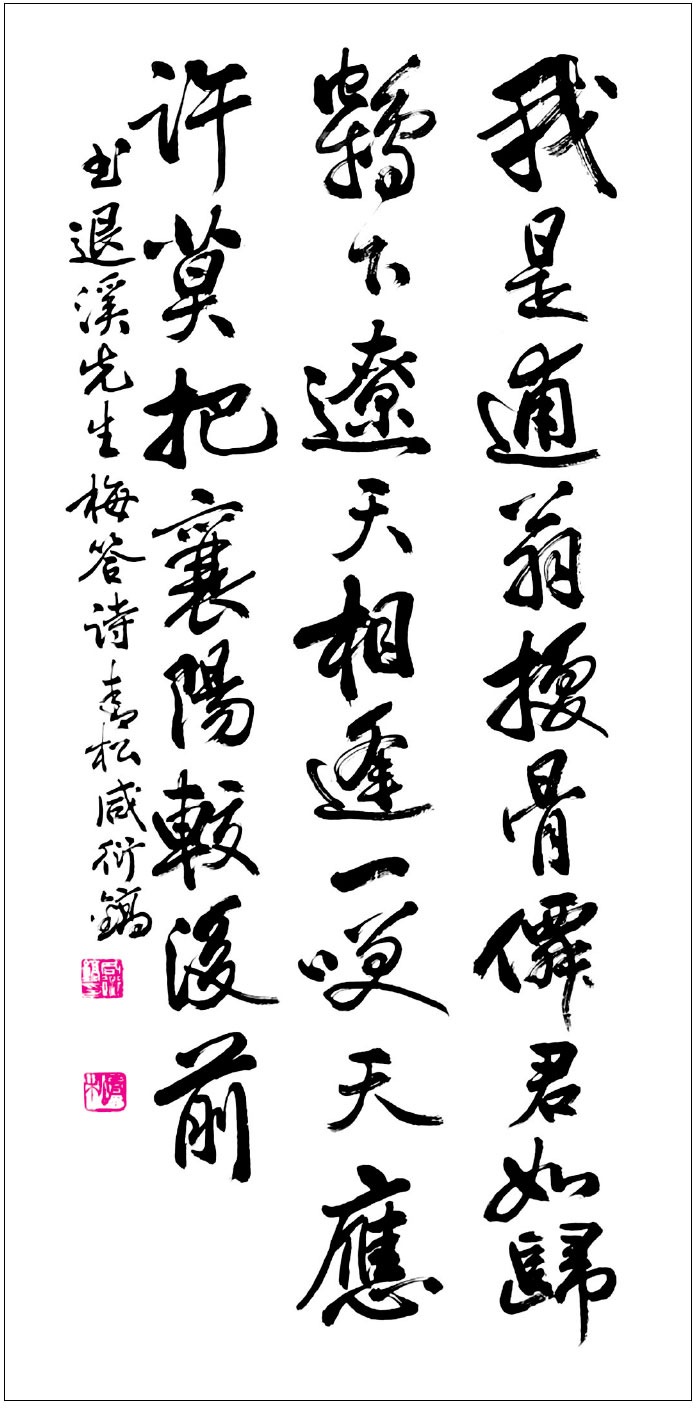 我是逋翁換骨僊君如歸
鶴下遼天相逢一咲天應
許莫把襄陽較後前
书退溪先生梅答詩青松咸衍鎬